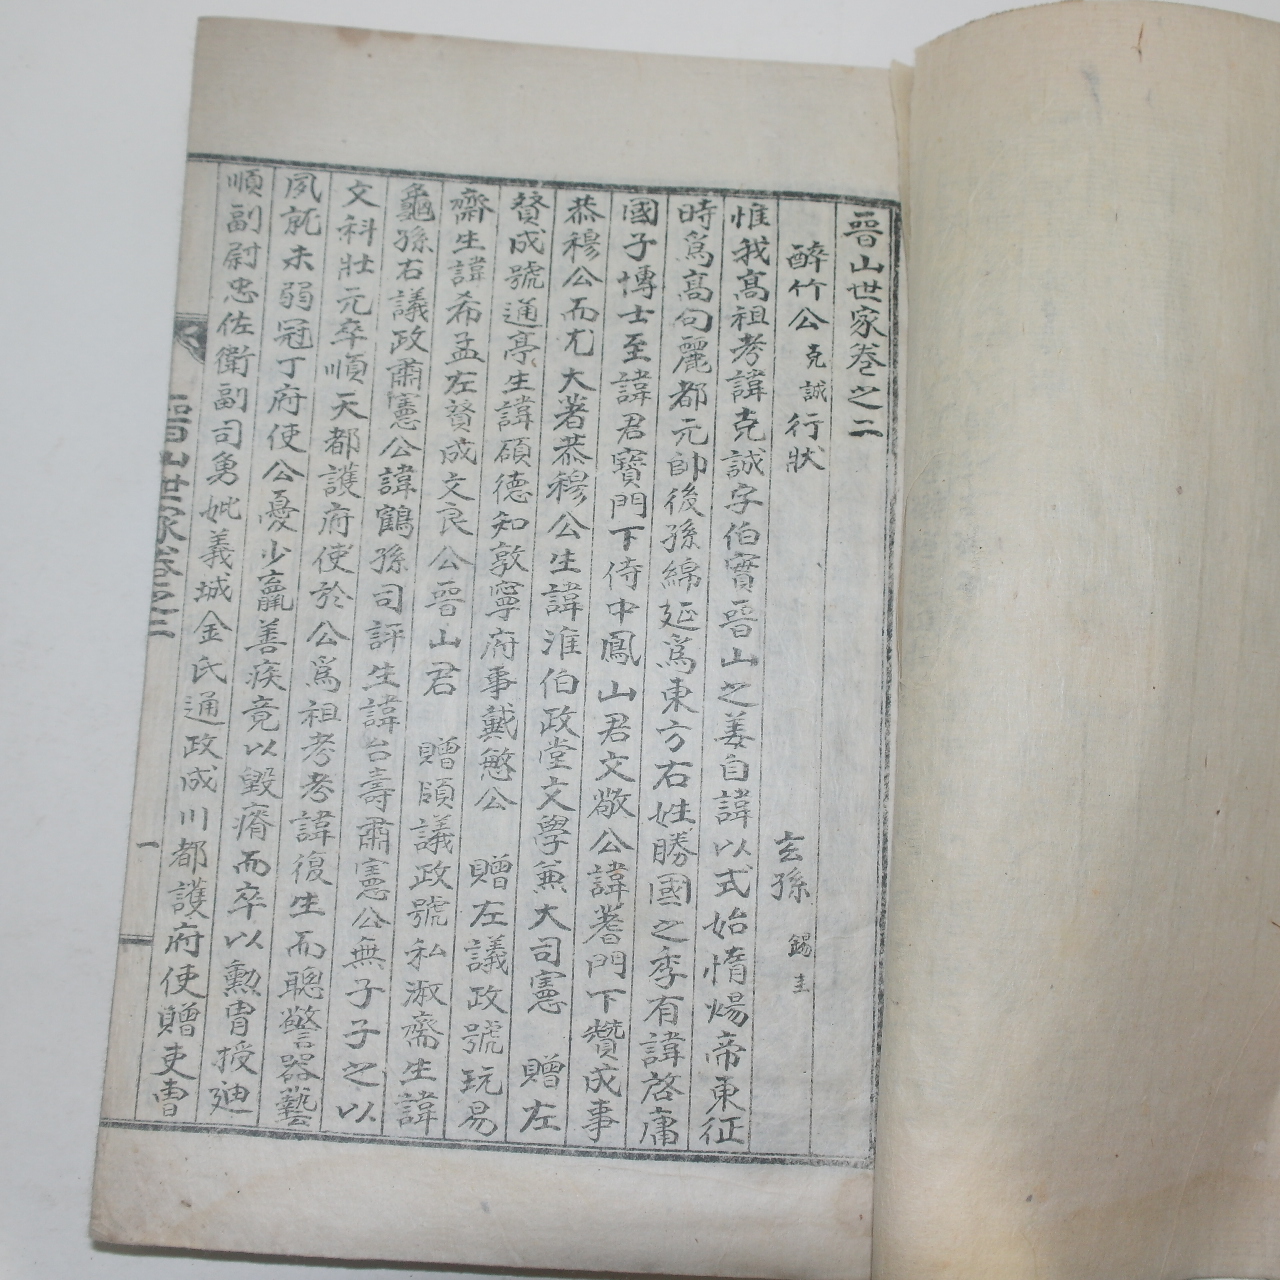 晉山世家卷之二
醉竹公克誠行狀
玄孫 錫圭
惟我高祖考諱克誠字伯實晉山之姜自諱以式始惰煬帝東征
時爲高句麗都元帥後孫綿延爲東方右姓勝國之季有諱啓庸
國子博士至諱君寶門下侍中鳳山君文敬公諱蓍門下贊成事
恭穆公而尤大著恭穆公生諱淮伯政堂文學兼大司憲 贈左
贊成號通亭生諱碩德知敦寧府事戴愍公 贈左議政號玩易
齋生諱希孟左贊成文良公晉山君 贈領議政號私淑齋生諱
龜孫右議政肅憲公諱鶴孫司評生諱台壽肅憲公無子子之以
文科壯元卒順天都護府使於公爲祖考考諱復生而聰警器藝
夙就未弱冠丁府使公憂少羸善疾竟以毀瘠而卒以勳胄授廸
順副尉忠佐衛副司勇妣義城金氏通政成川都護府使贈吏曹
晉山世家卷之二
一